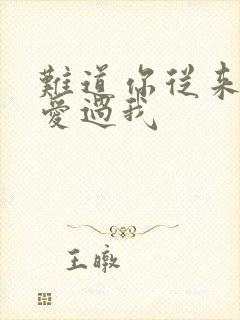 難道你從來
愛過我
王暾